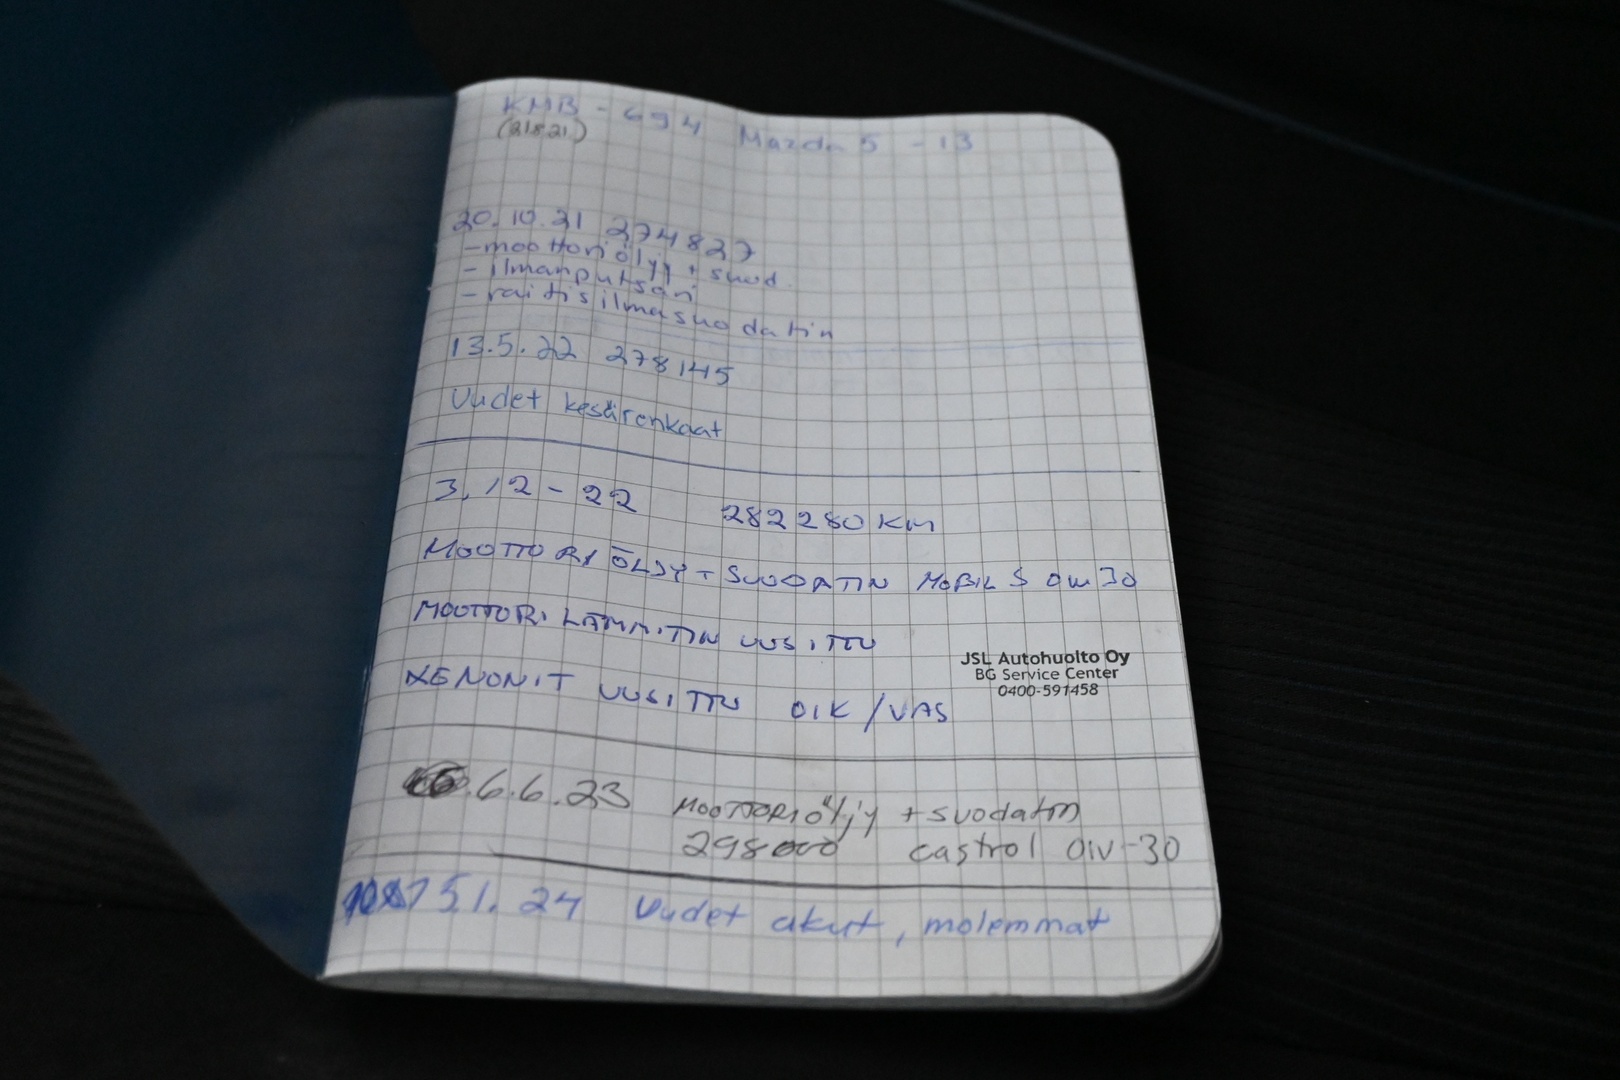 KMB - 694 Mazda 5 - 13
(21821)
20.10.21 274827
- moottoriöljy + suod.
- ilmanputsari
- raitisilmasuodatin
13.5.22 278145
Uudet kesärenkaat
3.12-22 282280 KM
MOOTTORIÖLJY + SUODATIN MOBIL 0W30
MOOTTORILÄMMITIN UUSITTU
JSL Autohuolto Oy
BG Service Center
0400-591458
XENONIT UUSITTU OIK/VAS
6.6.23 MOOTTORIöljy + suodatin
298000 castrol 0W-30
5.1.24 Uudet akut, molemmat